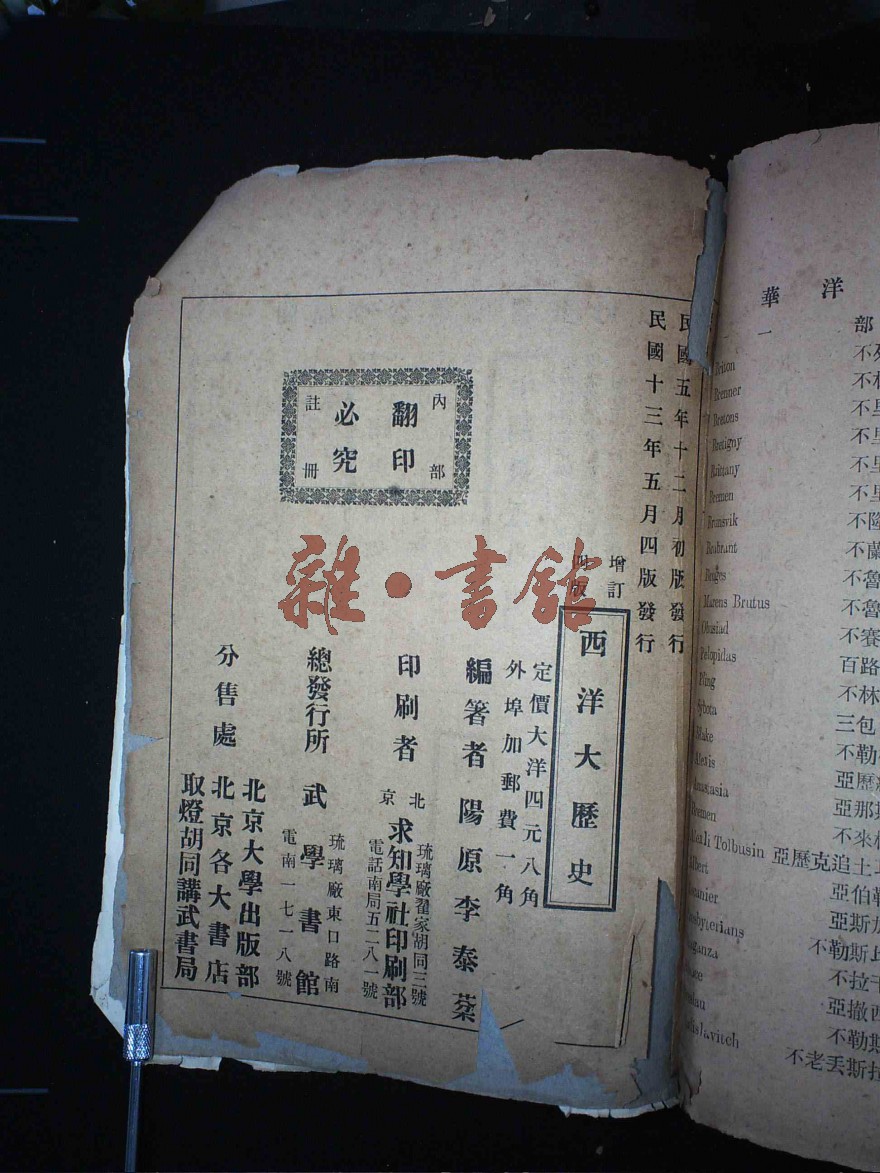 民國五年十二月初版發行
民國十三年五月四版發行
增訂
四版
西洋大歷史
定價大洋四元八角
外埠加郵費一角
編著者 陽原李泰棻
印刷者 北京 琉璃廠翟家胡同三號
求知學社印刷部
電話南局五二八一號
總發行所 琉璃廠東口路南
武學書館
電南一七一八號
分售處 北京大學出版部
北京各大書店
取燈胡同講武書局
內部
翻印
必究
註冊
雜·書館
華洋
一
部
Briton
Brenner
Bretons
Brittany
Bremen
Marcus Brutus
Pelopidas
Ning
Sybota
Blake
Alexis
Anastasia
Bremen
Tolbusin 亞歷克追土
百路
不林
三包
不勒
亞歷
亞那
不來
亞伯
亞斯
不勒斯
不拉
亞撤
不勒斯
不老丟斯拉